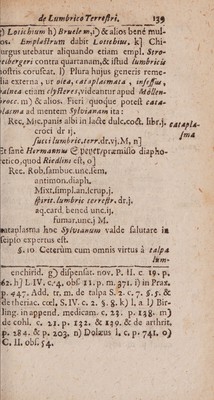 de Lumbrico Terrestri. 139
g) Lotichium h) Bruelem, i) & alios bené mul-
tos. Emplastrum dabit Lottebius, k) Chi-
rurgus utebatur aliquando etiam empl. Stro-
belbergeri contra quartanam, & istud lumbricis
nostris conficit. l) Plura hujus generis reme-
dia externa, ut olea, cataplasmata, infessus,
balnea etiam clysteres, videantur apud Möllen-
brocc. m) & alios. Fieri quoque potest cata-
plasma ad mentem Sylviani ita:
Rec. Mic. panis albi in lacte dulc. coct. libr. j. catapla-
croci dr ij, sma
succi lumbric. terr. dr. vj. M. n]
Et sanè Hermannus præmisso diapho-
retico, quod Riedlini est, o]
Rec. Rob. sambuc. unc. sem,
antimon. diaph.
Mixt. simpl. an. scrup. j.
spirit. lumbric terrestr. dr. j.
aq. card. bened unc. ij.
fumar. unc. j M.
cataplasma hoc Sylvianum valde salutare in
seipso expertus est.
§. 10. Ceterùm cum omnis virtus à talpa
lum-
enchirid. g) dispensat. nov. P. II. c. 19. p.
62. h] L IV. c. 4. obs 11. p. m. 371. i) in Prax.
p. 447. Add. tr. m. de talpa S. 2. c. 7. §. 5. &
de theriac. cœl. S. IV. c. 2. §. 8. k) l. a l) Bir-
ling. in append. medicam. c. 23. p. 138. m)
de cohl. c. 21. p. 132. & 139. & de arthrit.
p. 284. & p. 203. n) Dolæus l. c. p. 741. o)
C. II. obs. 54.